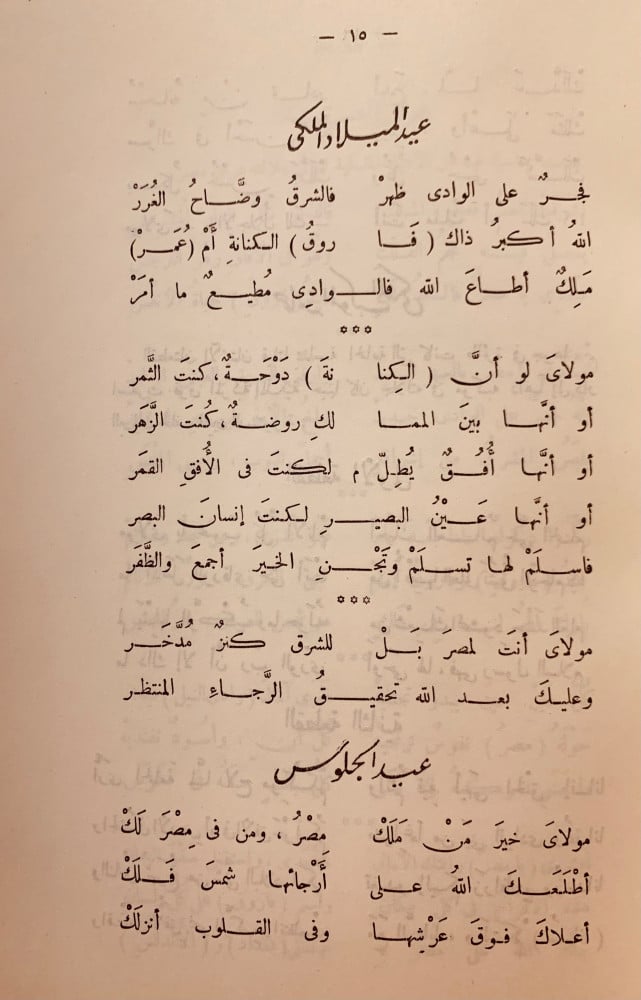 — ١٥ —
عيد الميلاد الملكى
فجرٌ على الوادى ظهرْ فالشرقُ وضَّاحُ الغُرَرْ
اللهُ أكبرُ ذاك ( فَا روقُ ) الكنانةِ أَمْ (عُمَرْ)
مَلِكٌ أطاعَ الله فالوادِى مُطيعٌ ما أمَرْ
***
مولاىَ لو أنَّ ( الكِنا نةَ ) دَوْحَةٌ، كنتَ الثَّمر
أو أنَّها بينَ المما لكِ روضةٌ، كُنتَ الزَّهَر
أو أنَّها أُفُقٌ يُطِلّ م لكنتَ فى الأُفقِ القمَر
أو أنَّها عَيْنُ البصيرِ لكنتَ إنسانَ البصر
فاسلَمْ لها تسلَمْ وتَجْنِ الخيرَ أجمعَ والظَّفَر
***
مولاىَ أنتَ لمصرَ بَلْ للشرق كنزٌ مُدَّخَر
وعليكَ بعد الله تحقيقُ الرَّجاءِ المنتظر
عيد الجلوس
مولاىَ خيرَ مَنْ مَلَكْ مِصْرُ ، ومن فى مِصْرَ لَكْ
أطْلَعَكَ اللهُ على أَرْجائها شمسَ فَلَكْ
أعلاكَ فوقَ عَرْشِها وفى القلوب أنزلَكْ